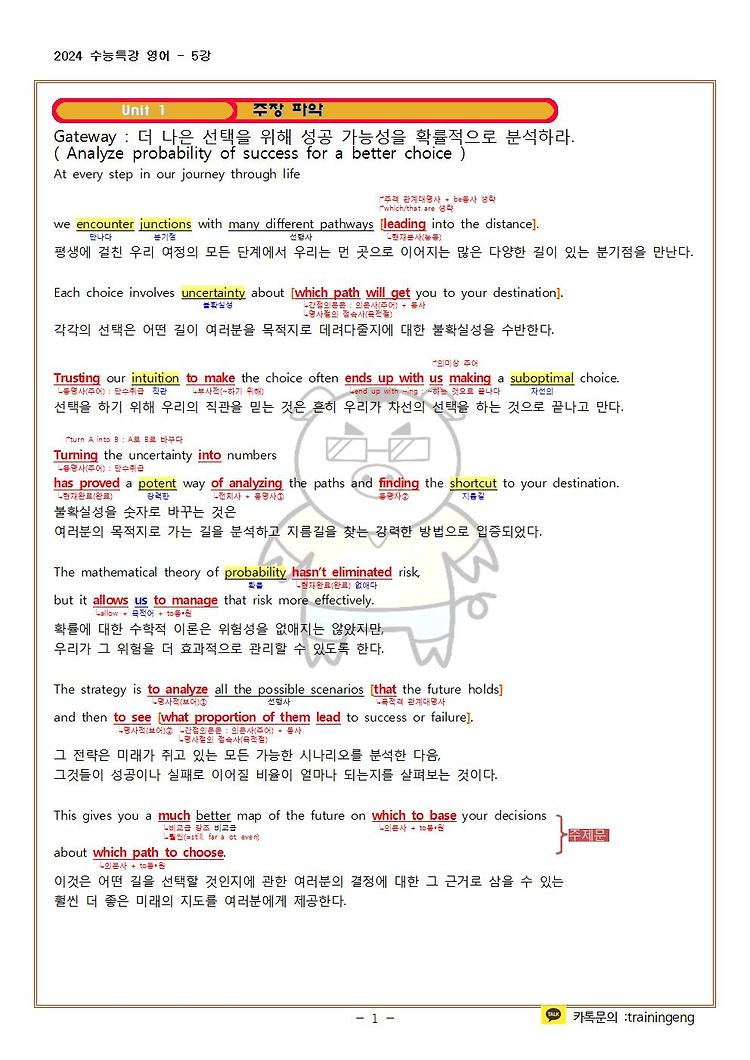 2024 수능특강 영어 - 5강
Unit 1 주장 파악
Gateway : 더 나은 선택을 위해 성공 가능성을 확률적으로 분석하라.
( Analyze probability of success for a better choice )
At every step in our journey through life
↱주격 관계대명사 + be동사 생략
↱which/that are 생략
we encounter junctions with many different pathways [leading into the distance].
만나다 분기점 선행사 ↳현재분사(능동)
평생에 걸친 우리 여정의 모든 단계에서 우리는 먼 곳으로 이어지는 많은 다양한 길이 있는 분기점을 만난다.
Each choice involves uncertainty about [which path will get you to your destination].
불확실성 ↳간접의문문 : 의문사(주어) + 동사
↳명사절의 접속사(목적절)
각각의 선택은 어떤 길이 여러분을 목적지로 데려다줄지에 대한 불확실성을 수반한다.
↱의미상 주어
Trusting our intuition to make the choice often ends up with us making a suboptimal choice.
↳동명사(주어) : 단수취급 직관 ↳부사적(~하기 위해) ↳end up with ~ing : ~하는 것으로 끝나다 차선의
선택을 하기 위해 우리의 직관을 믿는 것은 흔히 우리가 차선의 선택을 하는 것으로 끝나고 만다.
↱turn A into B : A로 B로 바꾸다
Turning the uncertainty into numbers
↳동명사(주어) : 단수취급
has proved a potent way of analyzing the paths and finding the shortcut to your destination.
↳현재완료(완료) 강력한 ↳전치사 + 동명사① 동명사② 지름길
불확실성을 숫자로 바꾸는 것은
여러분의 목적지로 가는 길을 분석하고 지름길을 찾는 강력한 방법으로 입증되었다.
The mathematical theory of probability hasn't eliminated risk,
확률 ↳현재완료(완료) 없애다
but it allows us to manage that risk more effectively.
↳allow + 목적어 + to동•원
확률에 대한 수학적 이론은 위험성을 없애지는 않았지만,
우리가 그 위험을 더 효과적으로 관리할 수 있도록 한다.
The strategy is to analyze all the possible scenarios [that the future holds]
↳명사적(보어)① 선행사 ↳목적격 관계대명사
and then to see [what proportion of them lead to success or failure].
↳명사적(보어)② ↳간접의문문 : 의문사(주어) + 동사
↳명사절의 접속사(목적절)
그 전략은 미래가 쥐고 있는 모든 가능한 시나리오를 분석한 다음,
그것들이 성공이나 실패로 이어질 비율이 얼마나 되는지를 살펴보는 것이다.
This gives you a much better map of the future on which to base your decisions
↳비교급 강조 비교급 ↳의문사 + to동•원
↳훨씬(=still, far a ot, even)
주제문
about which path to choose.
↳의문사 + to동•원
이것은 어떤 길을 선택할 것인지에 관한 여러분의 결정에 대한 그 근거로 삼을 수 있는
훨씬 더 좋은 미래의 지도를 여러분에게 제공한다.
- 1 -
TALK 카톡문의 :trainingeng